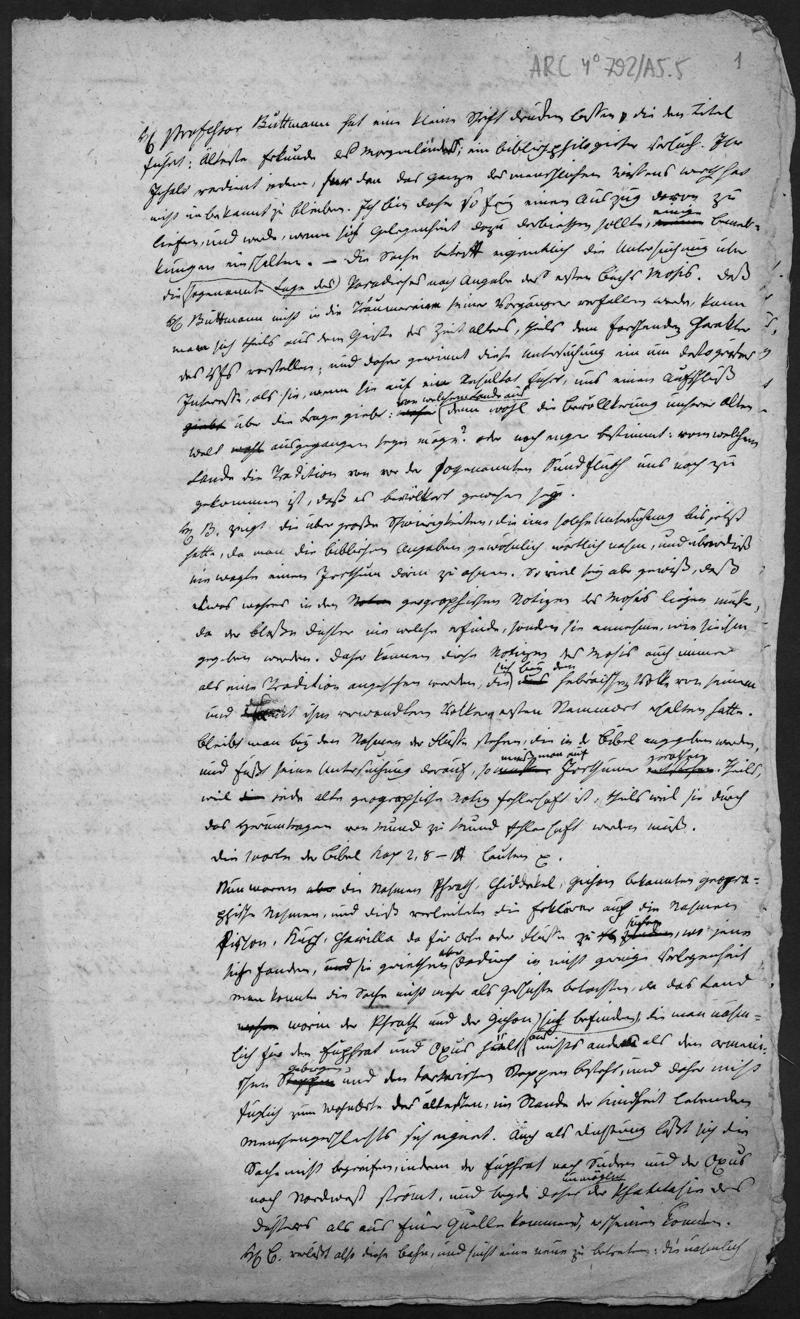 ARC 4° 792/A5.5
1
H Professor Buttmann hat eine kleine Schrift drucken lassen, die den Titel
führt: Älteste Erdkunde des Morgenländers; ein biblischphilologischer Versuch. Ihr
Inhalt verdient jedem, für den das Ganze des menschlichen Wissens werth hat
nicht unbekannt zu bleiben. Ich bin daher so frey einen Auszug davon zu
liefern, und werde, wenn sich Gelegenheit dazu darbiethen sollte, einige Bemer-
kungen einschalten. – Die Sache betrifft eigentlich die Untersuchung über
die (sogenannte Lage des) Paradieses nach Angabe des ersten Buchs Mosis. Daß
H Buttmann nicht in die Träumereien seiner Vorgänger verfallen werde, kann
man sich theils aus dem Geiste des Zeitalters, theils dem forschenden Charakter
des Vfs vorstellen; und daher gewinnt diese Untersuchung ein um desto größeres
Interesse, als sie, wenn sie auf ein Resultat führt, uns einen Aufschluß
über die Frage giebt: von welchem Lande aus denn wohl die Bevölkerung unserer alten
Welt ausgegangen seyn möge? oder noch enger bestimmt: von welchem
Lande die Tradition von vor der sogenannten Sündfluth uns noch zu
gekommen ist, daß es bevölkert gewesen sey.
H B. zeigt die über große Schwierigkeiten, die eine solche Untersuchung bis jetzt
hatte, da man die biblischen Angaben gewöhnlich wörtlich nahm, und überdieß
nie wagte einen Irrthum darin zu ahnen. So viel sey aber gewiß, daß
etwas wahres in den geographischen Notizen des Mosis liegen müsse,
da der bloße Dichter nie welche erfinde, sondern sie annehme, wie sie ihm
gegeben werden. Daher können diese Notizen des Mosis auch immer
als eine Tradition angesehen werden, die sich bey dem hebräischen Volke von seinem
und ihm verwandten Völkern ersten Stammort erhalten hatte.
Bleibt man bey den Nahmen der Flüsse stehen, die in der Bibel angegeben werden,
und fußt seine Untersuchung darauf, so muß man auf Irrthümer gerathen theils,
weil jede alte geographische Notiz fehlerhaft ist, theils weil sie durch
das Herumtragen von Mund zu Mund fehlerhaft werden muß.
Die Worte der Bibel Kap 2, 8–14 lauten
Nun waren die Nahmen Phrath, Chiddekel, Gichon bekannten geogra-
phische Nahmen, und dieß verleitete die Erklärer auch die Nahmen
Pischon, Kusch, Chavilla da für Orte oder Flüsse zu suchen, wo jene
sich fanden, sie geriethen aber dadurch in nicht geringe Verlegenheit
man konnte die Sache nicht mehr als Geschichte betrachten, da das Land
worin der Phrath und der Gichon sich befinden, die man nähm-
lich für den Euphrat und Oxus hält, aus nichts anders als dem armeni-
schen Gebirgen und den tartarischen Steppen besteht, und daher nicht
füglich zum Wohnorte des ältesten, im Stande der Kindheit lebenden
Menschengeschlechts sich eignet. Auch als Dichtung läßt sich die
Sache nicht begreifen, indem der Euphrat nach Süden und der Oxus
nach Nordwest strömt, und beyde daher unmöglich der Phantasie des
Dichters als aus Einer Quelle kommend, erscheinen konnten.
H B. verläßt also diese Bahn, und sucht eine neue zu betreten: die nähmlich